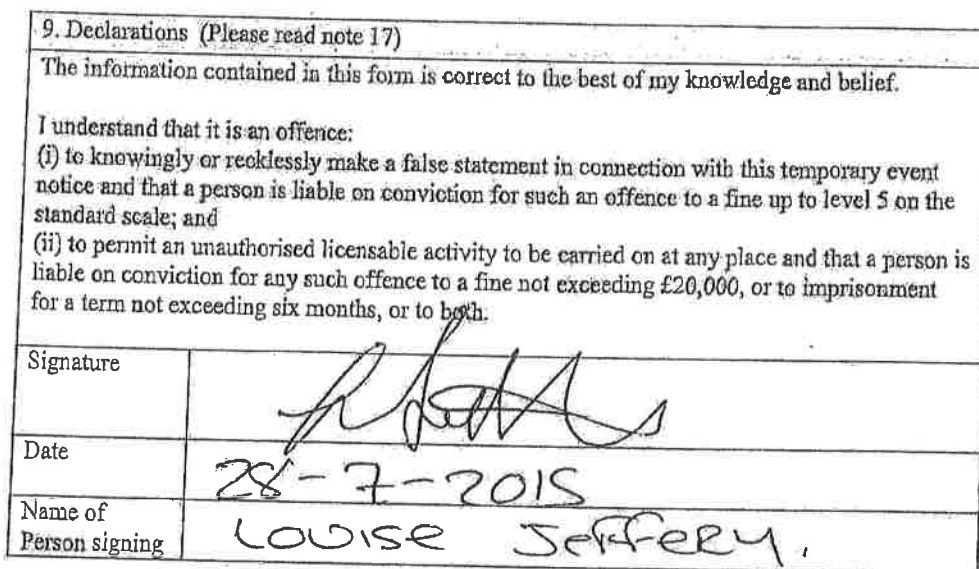 9. Declarations (Please read note 17)
The information contained in this form is correct to the best of my knowledge and belief.
I understand that it is an offence:
(i) to knowingly or recklessly make a false statement in connection with this temporary event
notice and that a person is liable on conviction for such an offence to a fine up to level 5 on the
standard scale; and
(ii) to permit an unauthorised licensable activity to be carried on at any place and that a person is
liable on conviction for any such offence to a fine not exceeding £20,000, or to imprisonment
for a term not exceeding six months, or to both.
Signature
Date
28-7-2015
Name of
Person signing
LOUISE JEFFERY.